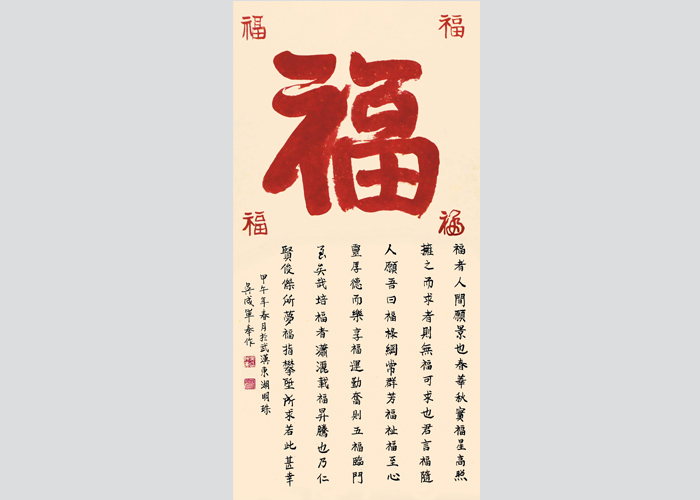 福
福
福
福
福
福者人間願景也春華秋實福星高照
擁之而求者則無福可求也君言福隨
人願吾曰福祿綱常群芳福祉福至心
靈厚德而樂享福運勤奮則五福臨門
美哉培福者瀟灑載福昇騰也乃仁
賢俊傑所夢福指攀墜所求若此甚幸
甲午年春月於武漢東湖明珠
吳成軍奉作